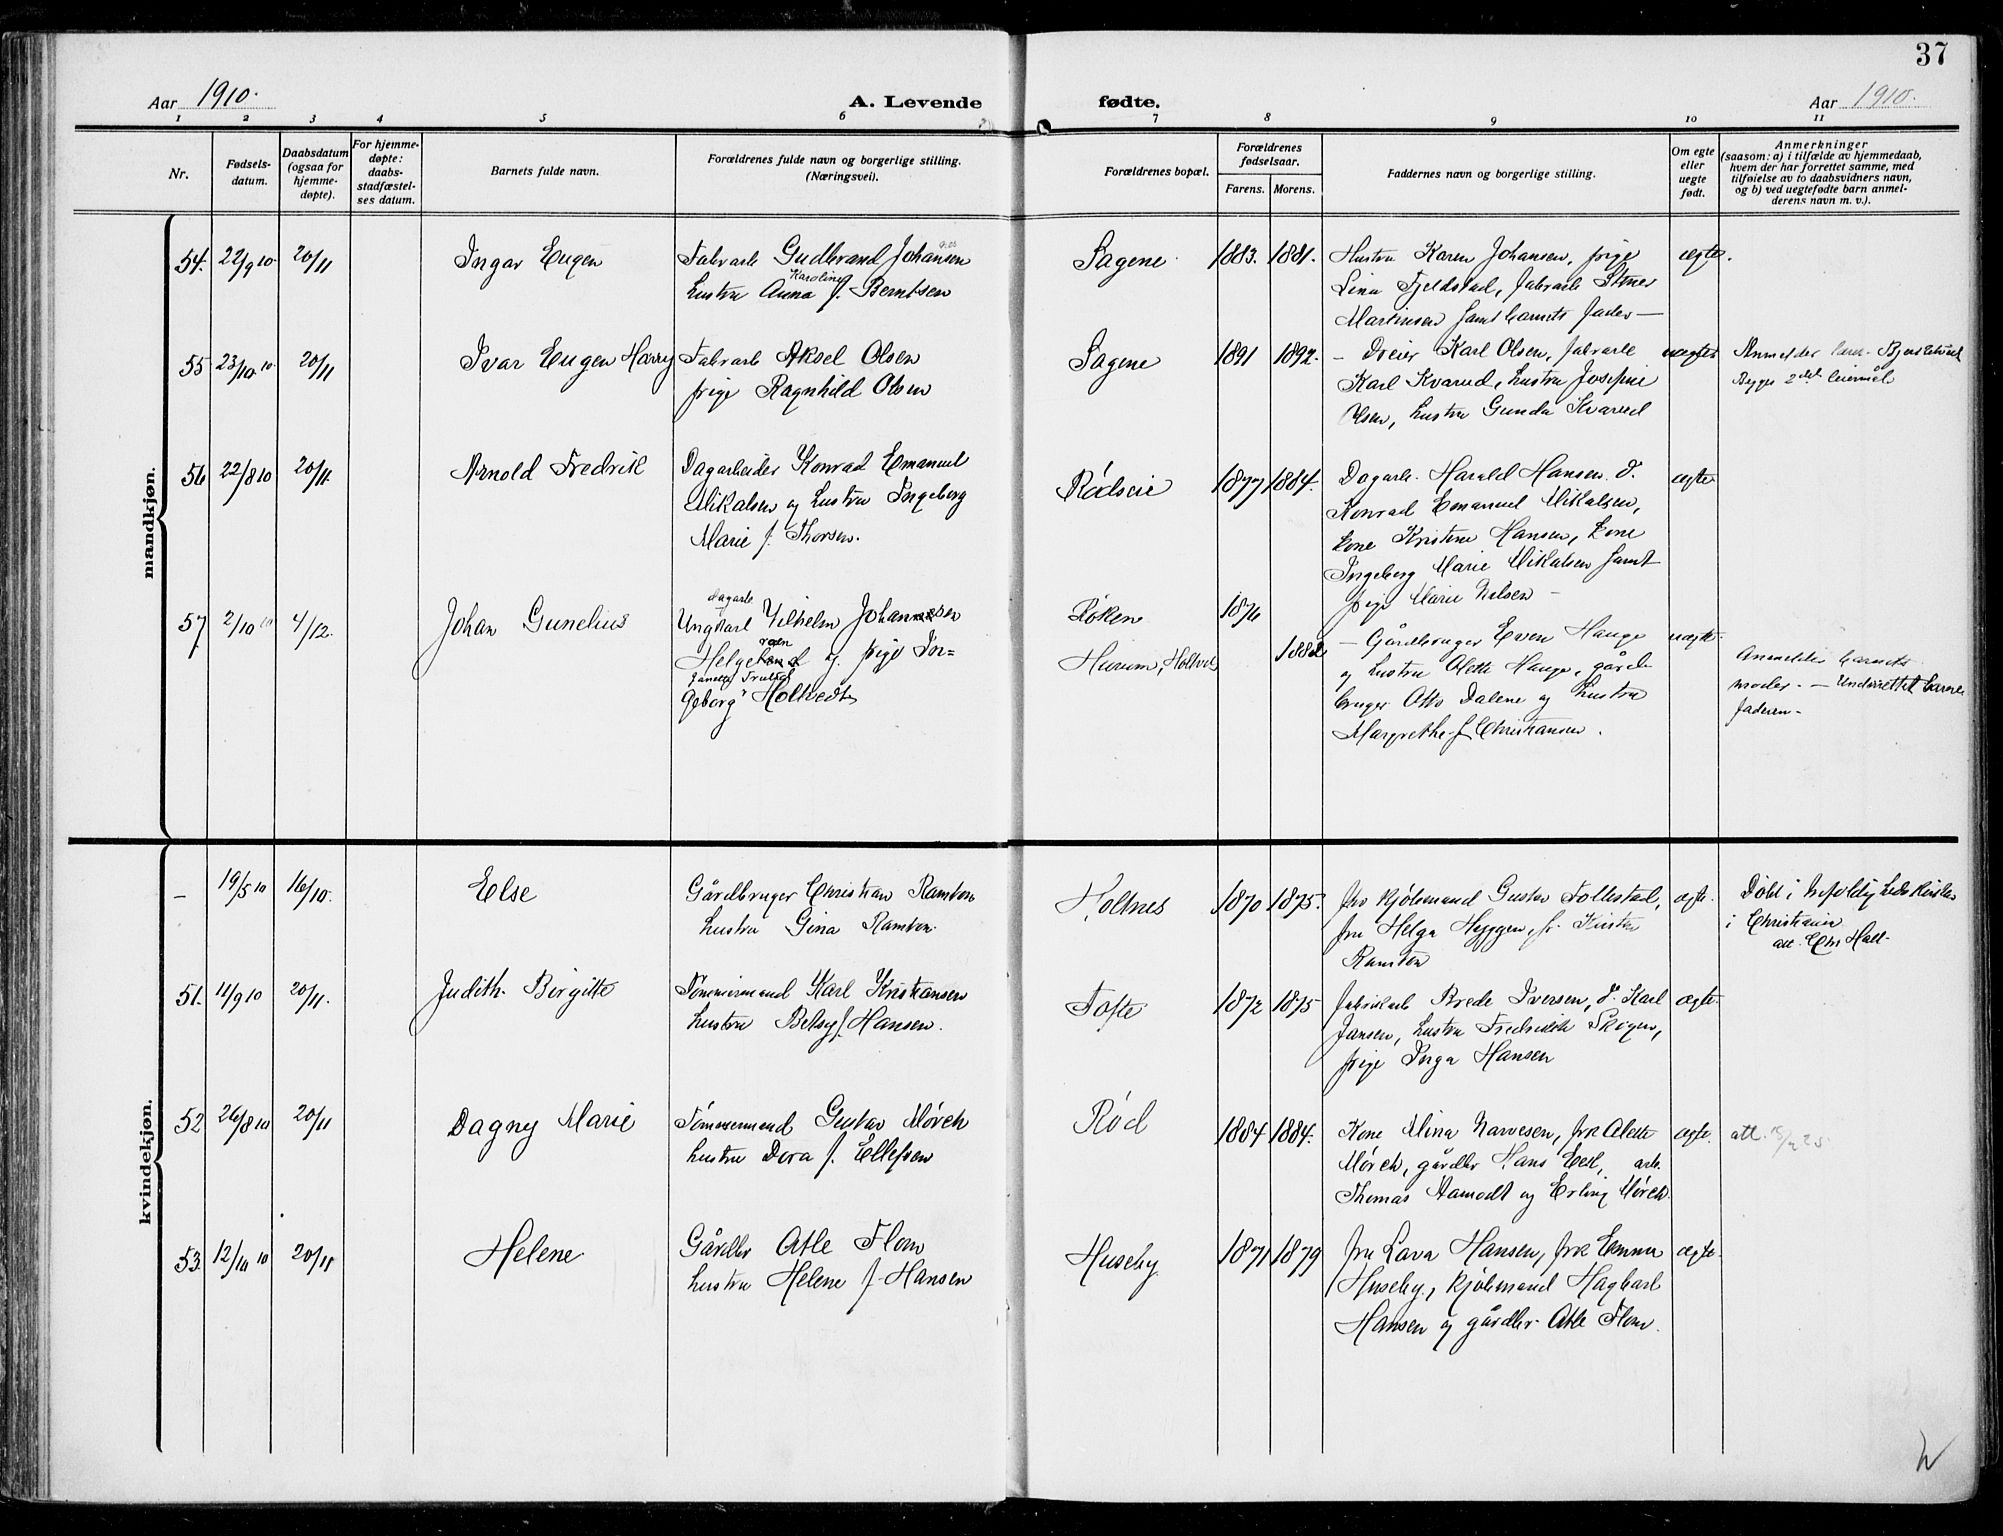 37
Aar 1910.
A. Levende
fødte.
Aar 1910.
1 2 3 4 5 6 7 8 9 10 11
Nr.
Fødsels-
datum.
Daabsdatum
(ogsaa for
hjemme-
døpte).
For hjemme-
døpte:
daabs-
stadfæstel-
ses datum.
Barnets fulde navn.
Forældrenes fulde navn og borgerlige stilling.
(Næringsvei).
Forældrenes bopæl.
Forældrenes
fødselsaar.
Farens. Morens.
Faddernes navn og borgerlige stilling.
Om egte
eller
uegte
født.
Anmerkninger
(saasom: a) i tilfælde av hjemmedaab,
hvem der har forrettet samme, med
tilføielse av to daabsvidners navn,
og b) ved uegtefødte barn anmel-
derens navn m. v.).
mandkjøn.
54. 22/9 10 20/11 Ingar Eugen
Fabrarb Gudbrand Johansen
Karoline
hustru Anna f. Berntsen
Sagene 1883. 1881.
Hustru Karen Johansen, pige
Lina Fjeldstad, fabrarb
Martinsen samt barnets fader —
ægte.
55 23/10 10 20/11 Ivar Eugen Harry
Fabrarb Aksel Olsen
pige Ragnhild Olsen
Sagene 1891 1892.
— Dreier Karl Olsen, fabrarb
Karl Kvarud, hustru Josefine
Olsen, hustru Gunda Kvarud
uægte
Anmelder
Bygge 2det leiermål
56 22/8 10 20/11. Arnold Fredrik
Dagarbeider Konrad Emanuel
Mikalsen og hustru Ingeborg
Marie f. Thorsen.
Rødseie 1877 1884.
Dagarb. Harald Hansen. d.
Konrad Emanuel Mikalsen,
kone Kristine Hansen, kone
Ingeborg Marie Mikalsen samt
pige Marie Nilsen —
ægte
57 2/10 10 4/12. Johan Gunelius
dagarb
Ungkarl Vilhelm Johannesen
Helgeland og pige In-
geborg Holtvedt
Røken 1876
Hurum, Holtved 1882
— Gårdbruger Even Hauge
og hustru Alette Hauge, gård-
bruger Otto Dalene og hustru
Margrethe f Christiansen.
uægte.
Anmelder barnets
moder. — Underrettet barne
faderen.
kvindekjøn.
— 19/5 10 16/10. Else
Gårdbruger Christian Ramton
hustru Gina Ramton.
Holtnes 1870 1875.
fru kjøbmand Gustav Follestad,
fru Helga Heyggen, fr. Kirsten
Ramton
ægte.
Døbt i
i Christiania
att. Chr Hall.
51. 11/9 10 20/11. Judith Birgitte
Tømmermand Karl Kristiansen
hustru Betsy f. Hansen.
Tofte 1872 1875
fabrikarb Brede Iversen, d. Karl
Jansen, hustru Fredrikke Skogen,
pige Inga Hansen
ægte
52 26/8 10 20/11 Dagny Marie
Tømmermand Gustav Mørch
hustru Dora f. Ellefsen
Rød 1884 1884.
Kone Mina Narvesen, frk Alette
Mørch, gårdbr Hans Eed, arb.
Thomas Aamodt og Erling Mørch.
ægte.
att.
53. 12/10 10 20/11 Helene
Gårdbr Atle Flom
hustru Helene f. Hansen
Huseby 1871 1879
fru Lava Hansen, frk Emma
Huseby, kjøbmand Hagbart
Hansen og gårdbr. Atle Flom.
ægte.